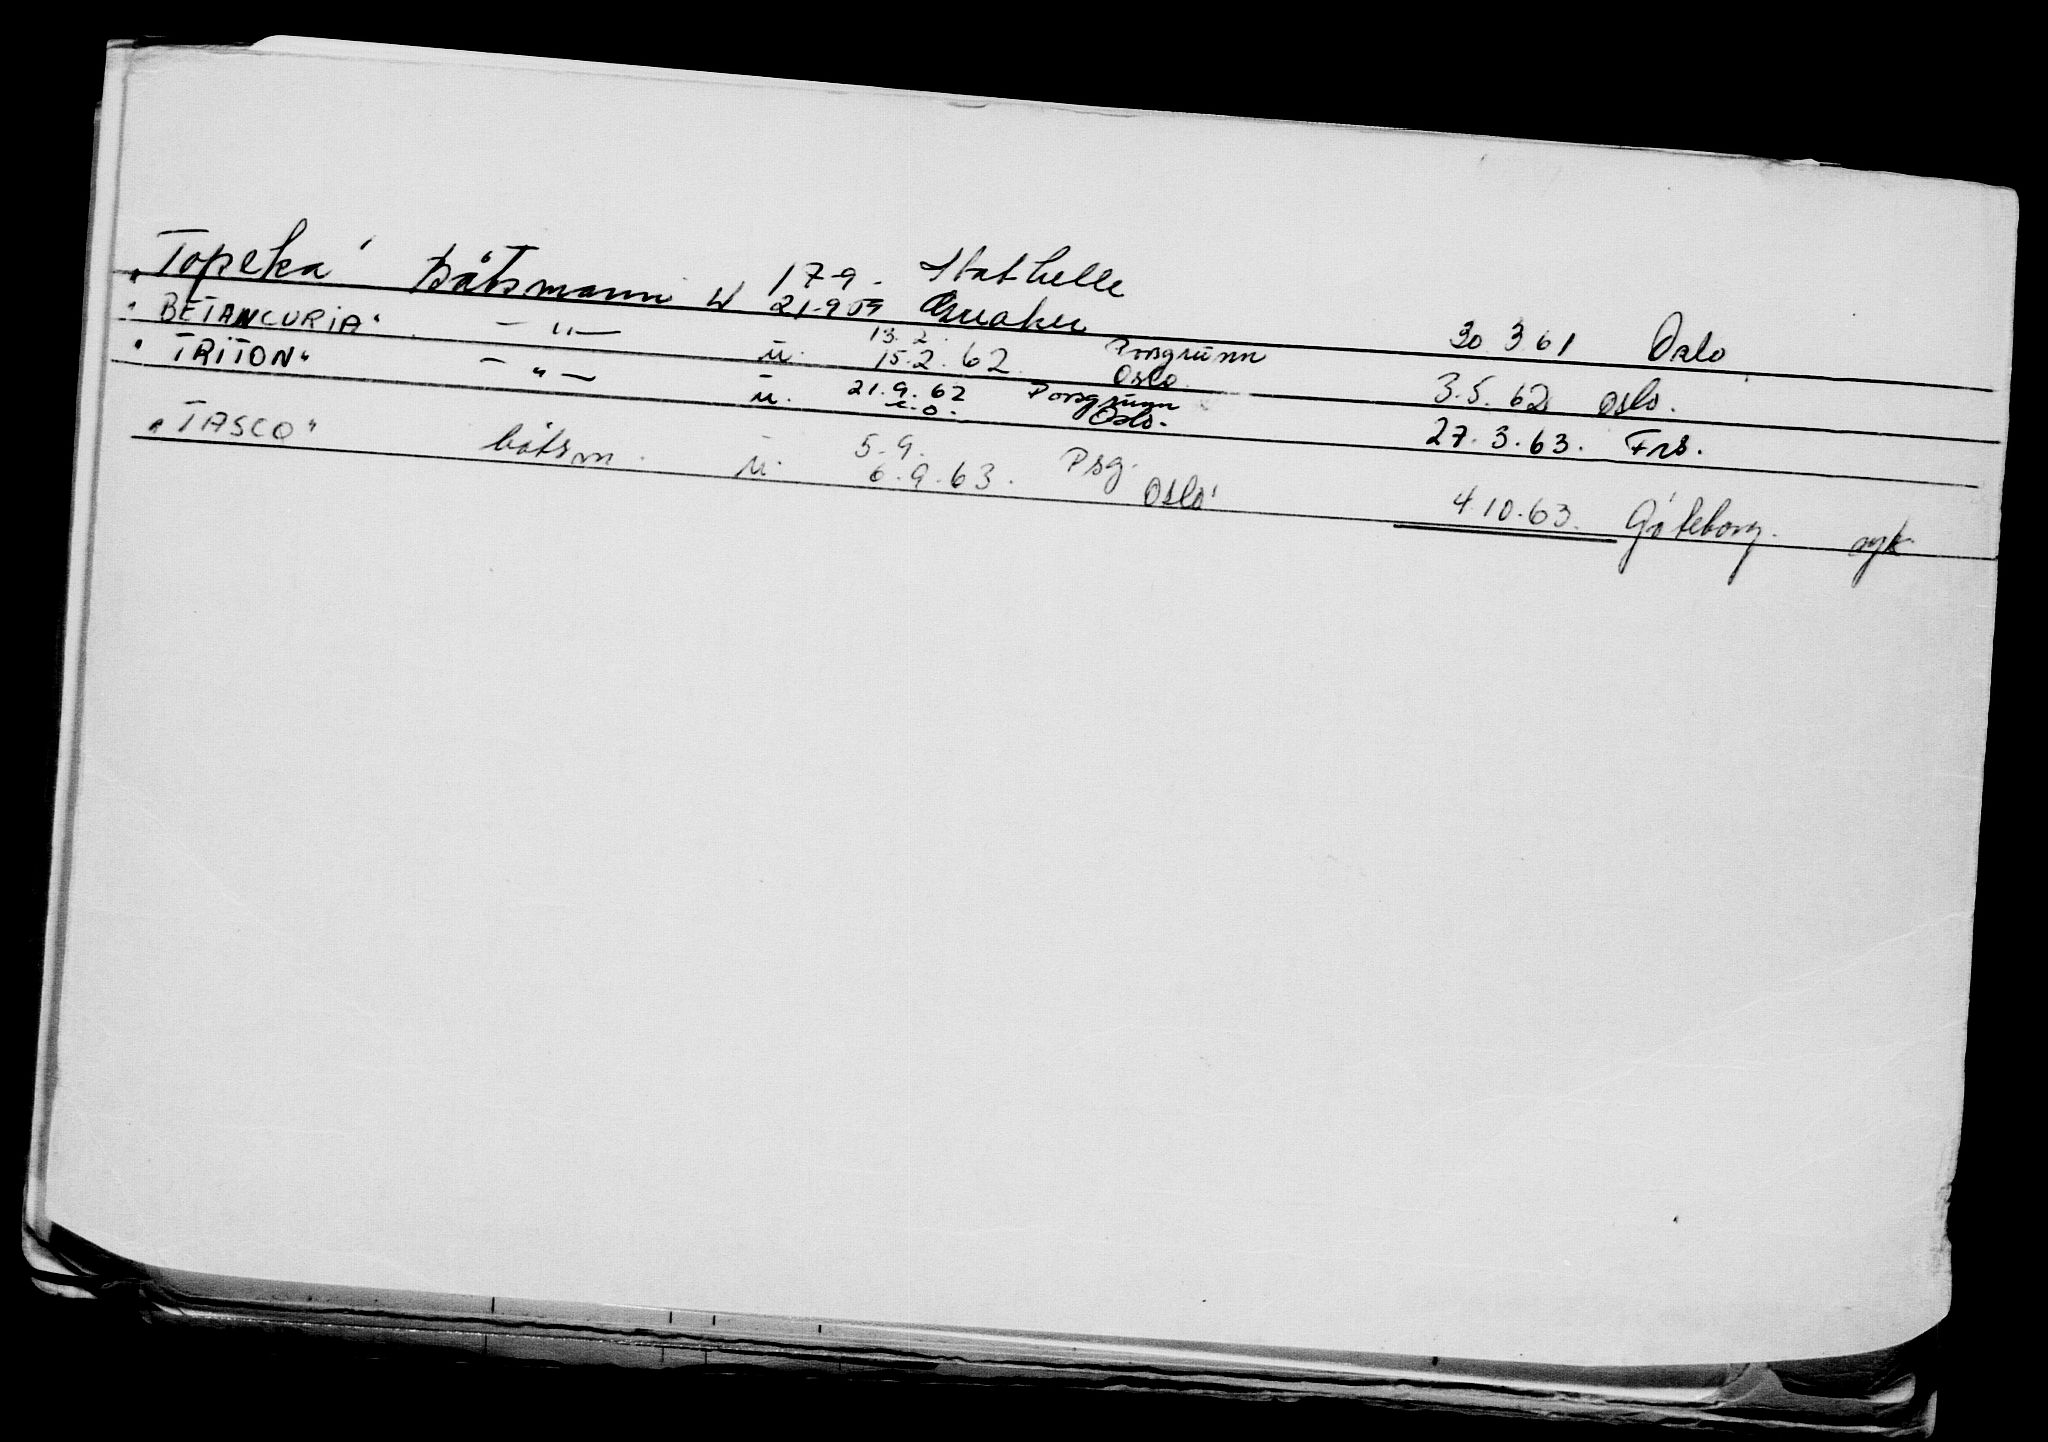 "Topeka" Båtsmann u 17-9. Stathelle
21-9 59 30 3 61 Oslo
"BETANCURIA" — " — u. 13.2. Porsgrunn
15.2.62. Oslo. 3.5.62 Oslo.
"TRITON" — " — u. 21.9.62 Porsgrunn
s.d. Oslo. 27.3.63. Frs.
"TASCO" båtsm. u. 5.9. Psg.
6.9.63. Oslo 4.10.63. Göteborg. syk